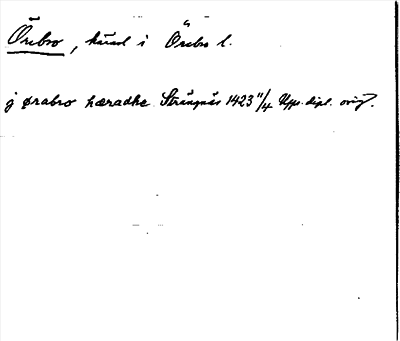 Örebro, härad i Örebro l.
j ørabro hæradhe Strängnäs 1423 11/4 Upps. dipl. orig.